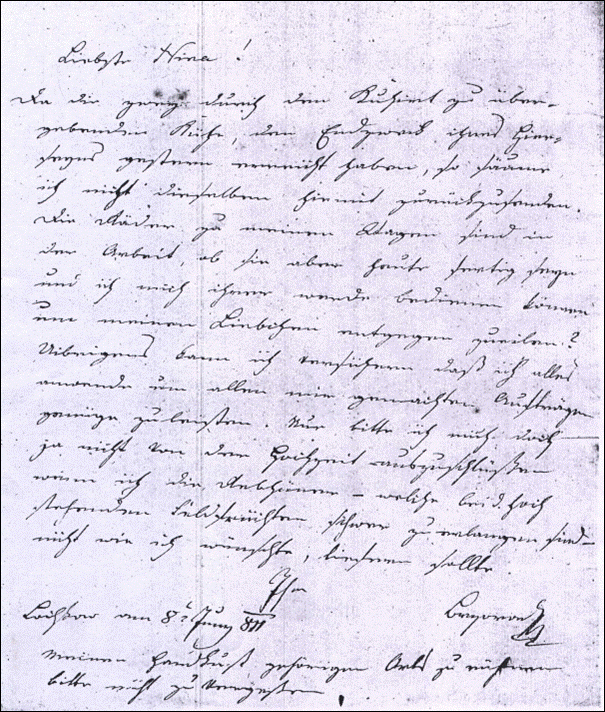 Liebste Nina!
Da die zwey durch den Kuhirt zu über-
gebenden Kühe, den Endzweck ihres Hier-
seyns gestern erreicht haben, so säume
ich nicht dieselben hiemit zurückzusenden.
Die Räder zu meinen Wagen sind in
der Arbeit, ob sie aber heute fertig seyn
und ich mich ihrer werde bedienen können
um meinen Liebchen entgegen zu eilen?
Uibrigens kann ich versichern daß ich alles
anwende um allen mir gemachten Aufträgen
genüge zu leisten. Nur bitte ich mich doch
ja nicht von der Hochzeit auszuschlüßen
wenn ich die Rebhüner – welche beid. hoch
stehenden Feldfrüchten schwer zu erlangen sind –
nicht wie ich wünschte, liefern sollte
Ihr
am 8t Juny 811
Meinen Handkuß gehörigen Orts zu
bitte nicht zu vergessen